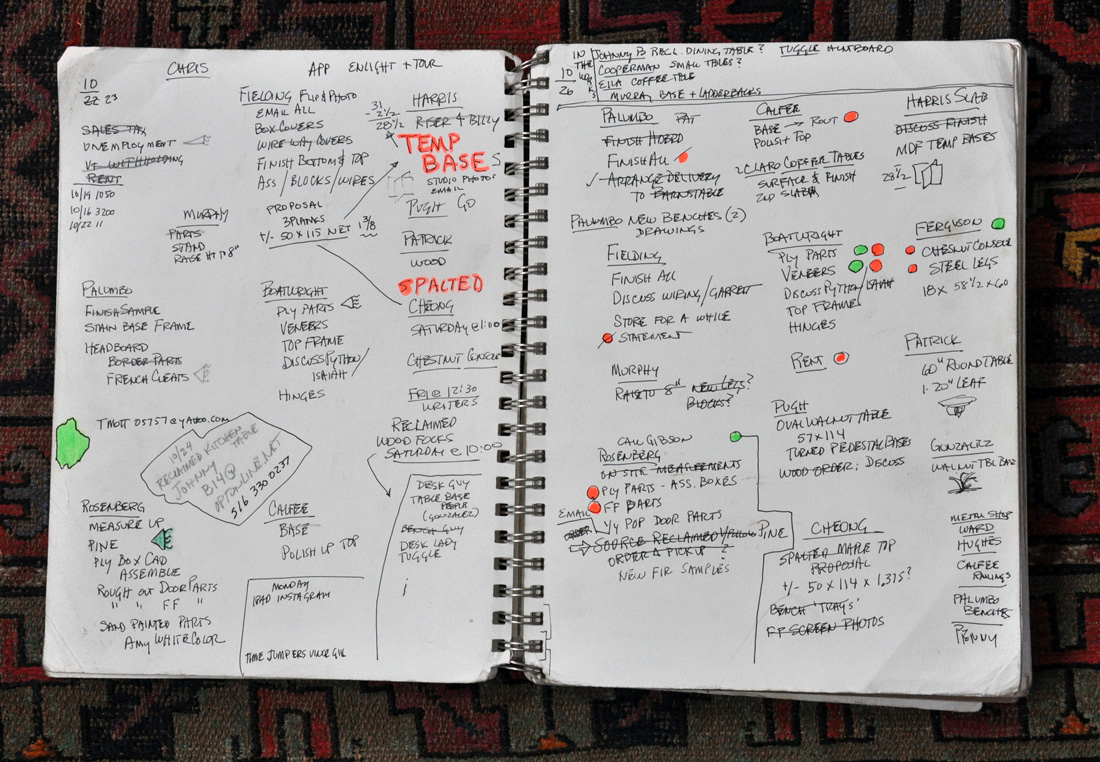 10
22 23
CHRIS
APP ENLIGHT + TOUR
SALES TAX
UNEMPLOYMENT
VT WITHHOLDING
RENT
10/14 1050
10/16 3200
10/22 11
MURPHY
PARTS
STAND
RAISE HT TO 8"
PALUMBO
FINISH SAMPLE
STAIN BASE FRAME
HEADBOARD
BORDER PARTS
FRENCH CLEATS
TMOTT05757@YAHOO.COM
10/24
RECLAIMED KITCHEN
TABLE
JOHNNY
B14@
OPTONLINE.NET
516 330 0237
ROSENBERG
MEASURE UP
PINE
PLY BOX CAD
ASSEMBLE
ROUGH OUT DOOR PARTS
" " FF "
SAND PAINTED PARTS
AMY WHITE COLOR
FIELDING FLIP & PHOTO
EMAIL ALL
BOX COVERS
WIRE WAY COVERS
FINISH BOTTOM & TOP
ASS / BLOCKS / WIRES
PROPOSAL
3 PLANKS
+/- 50 X 115 NET 1 3/8
BOATWRIGHT
PLY PARTS
VENEERS
TOP FRAME
DISCUSS PYTHON /
ISAIAH
HINGES
CALFEE
BASE
POLISH UP TOP
MONDAY
IPAD INSTAGRAM
TIME JUMPERS VINCE GILL
31
- 2 1/2
28 1/2
HARRIS
RISER & BILLY
TEMP
BASES
STUDIO PHOTOS
EMAIL
PUGH GO
PATRICK
WOOD
SPALTED
CHEONG
SATURDAY @ 1:00
CHESTNUT CONSOLE
FRI @ 12:30
WRITERS
RECLAIMED
WOOD FOCKS
SATURDAY @ 10:00
DESK GUY
TABLE BASE
PEOPLE
(GONZALEZ)
BENCH GUY
DESK LADY
TUGGLE
10
26
IN THE WORKS
JOHNNY B RECL. DINING TABLE? TUGGLE HUNTBOARD
COOPERMAN SMALL TABLES?
EILA COFFEE TBLE
MURRAY BASE + LADDERBACKS
PALUMBO PAT
FINISH HDBRD
FINISH ALL
✓ ARRANGE DELIVERY
TO BARNSTABLE
PALUMBO NEW BENCHES (2)
DRAWINGS
FIELDING
FINISH ALL
DISCUSS WIRING / GARRETT
STORE FOR A WHILE
STATEMENT
MURPHY
RAISE TO 8" NEW LEGS?
BLOCKS?
CALL GIBSON
ROSENBERG
ON SITE MEASUREMENTS
PLY PARTS - ASS. BOXES
FF PARTS
EMAIL
ORDER
1/4 POP DOOR PARTS
SOURCE RECLAIMED PINE
ORDER & PICK UP ?
NEW FIR SAMPLES
CALFEE
BASE → ROUT
POLISH TOP
2 CLARO COFFEE TABLES
SURFACE & FINISH
2ND SLAB
BOATWRIGHT
PLY PARTS
VENEERS
DISCUSS PYTHON / ISAIAH
TOP FRAME
HINGES
RENT
PUGH
OVAL WALNUT TABLE
57 X 114
TURNED PEDESTAL BASES
WOOD ORDER: DISCUSS
CHEONG
SPALTED MAPLE TOP
PROPOSAL
+/- 50 X 114 X 1.375?
BENCH 'TRAYS'
FP SCREEN PHOTOS
HARRIS SLAB
DISCUSS FINISH
MDF TEMP BASES
28 1/2
FERGUSON
CHESTNUT CONSOLE
STEEL LEGS
18 X 58 1/2 X 60
PATRICK
60" ROUND TABLE
1-20" LEAF
GONZALEZ
WALNUT TBL BASE
METAL SHOP
WARD
HUGHES
CALFEE
RAILINGS
PALUMBO
BENCHES
PENNY